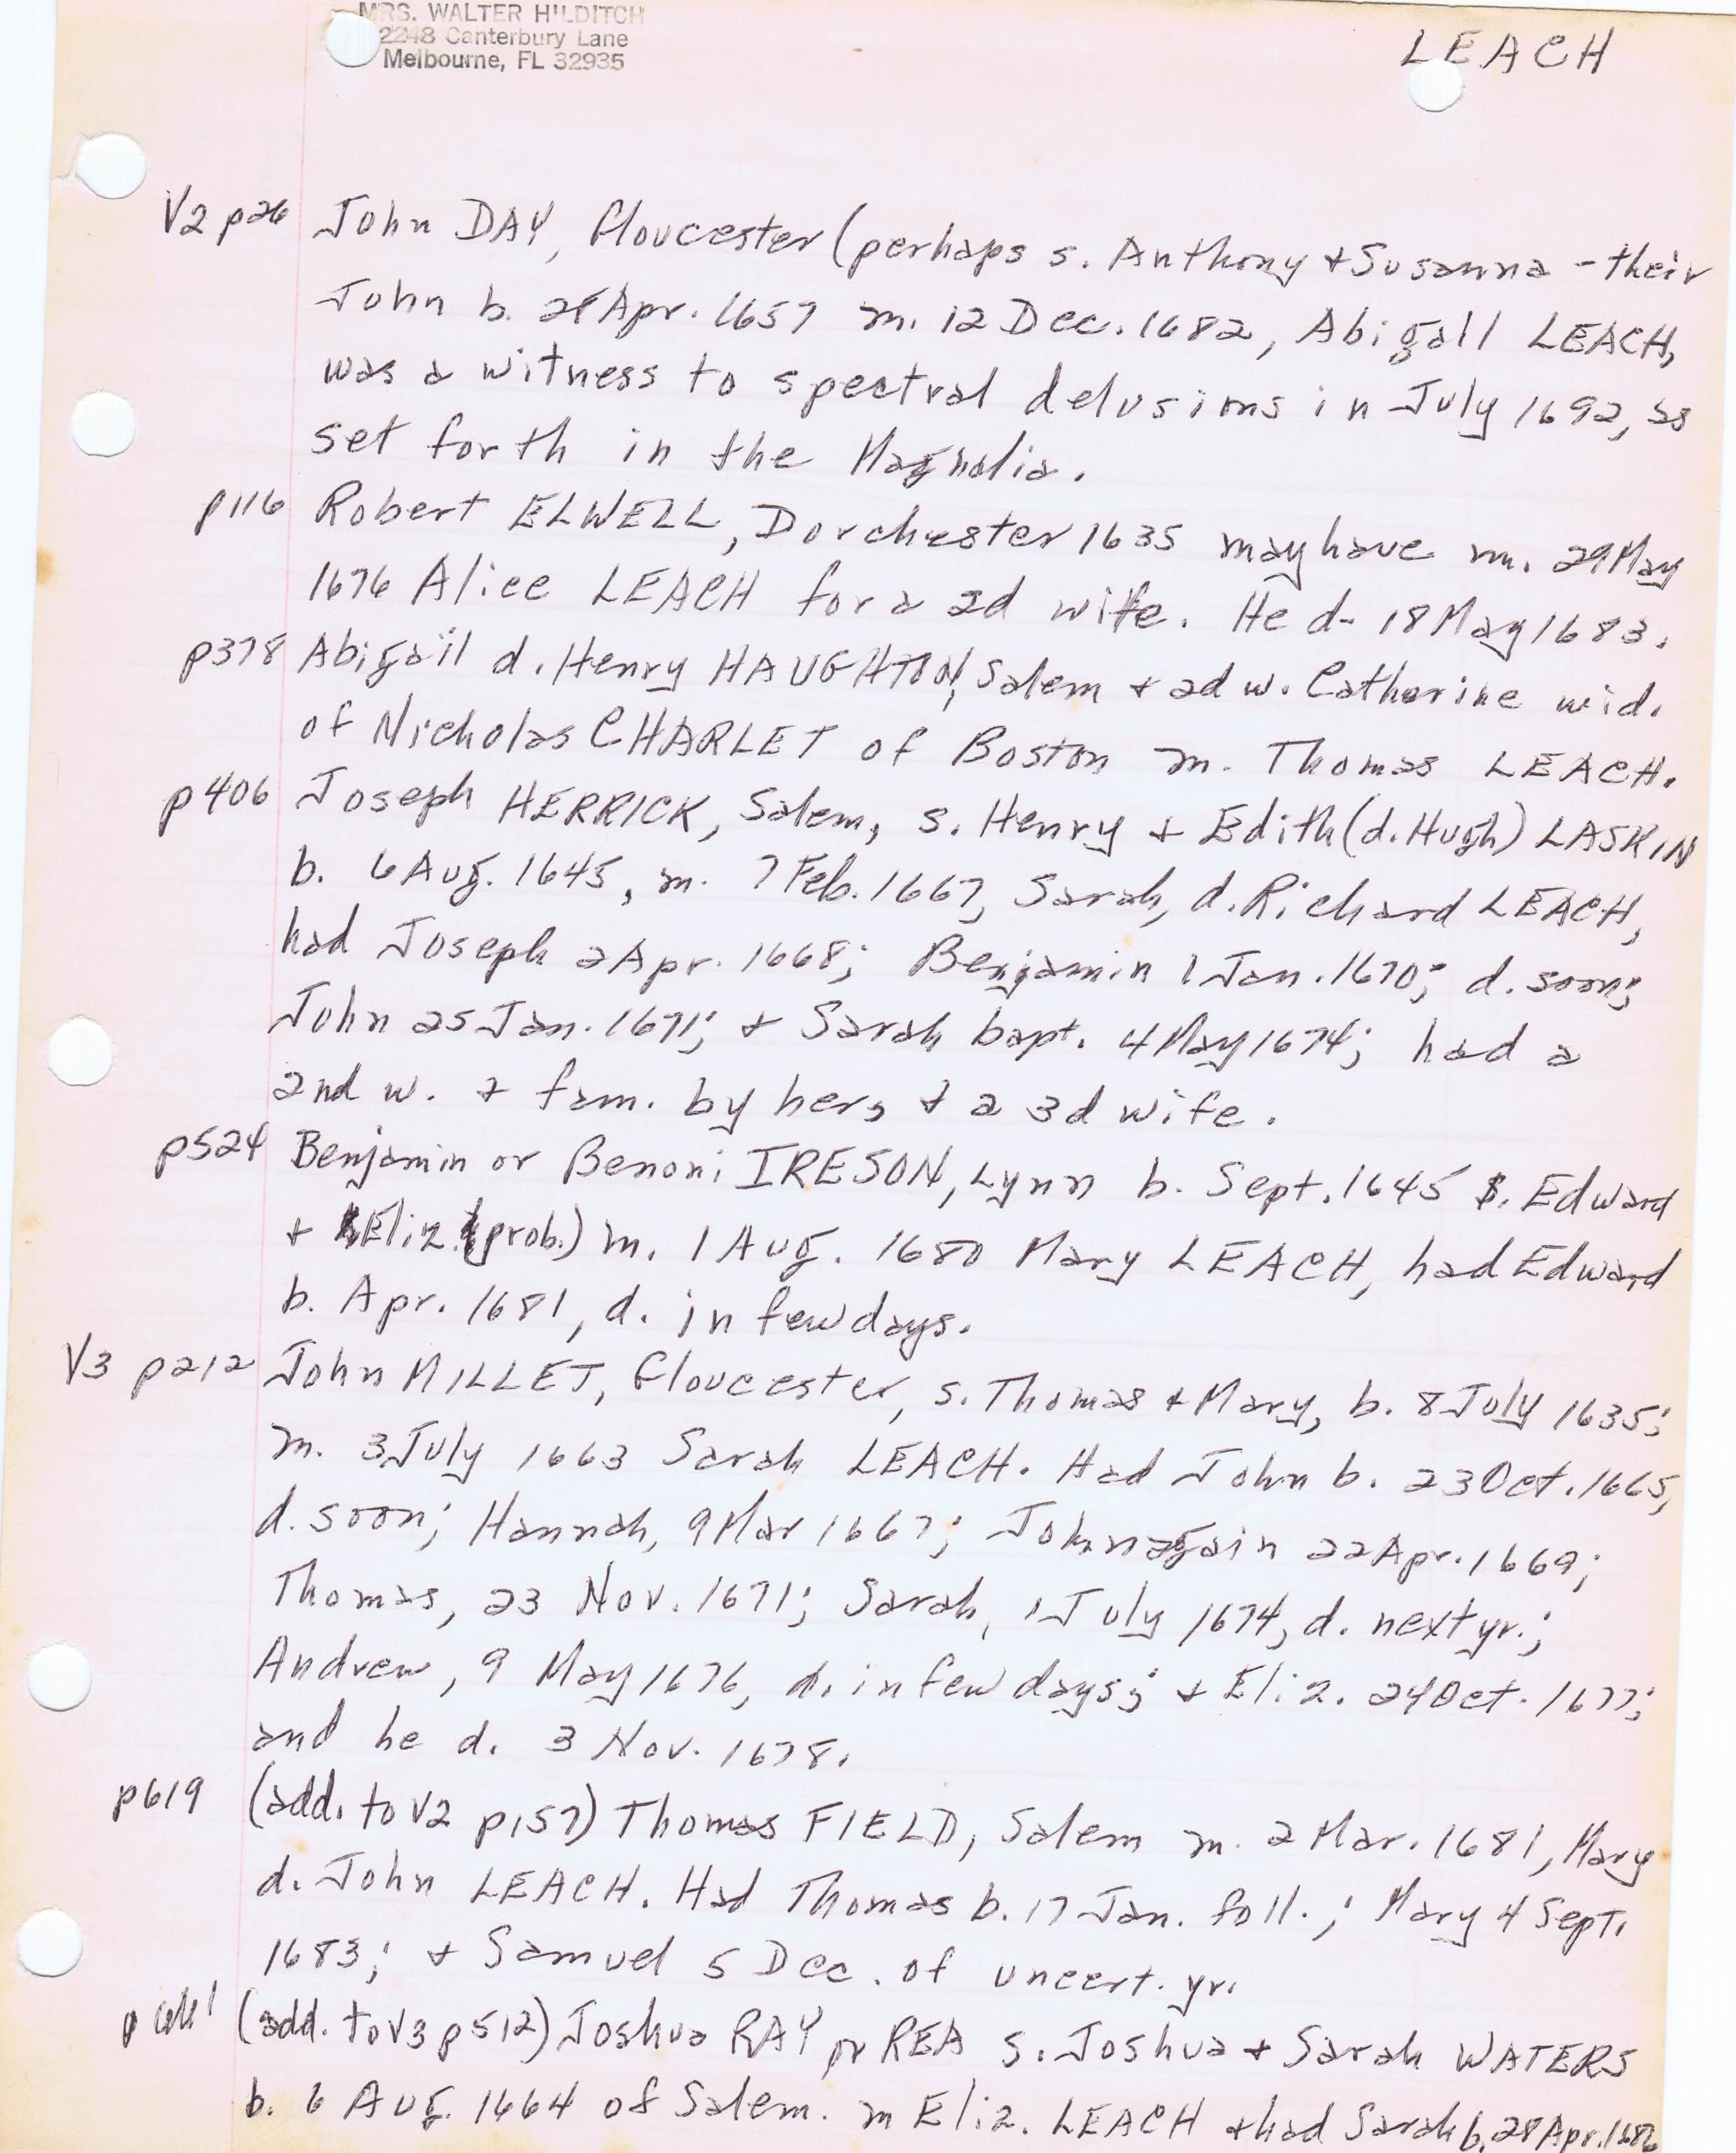 MRS. WALTER HILDITCH
2248 Canterbury Lane
Melbourne, FL 32935
LEACH
V2 p26 John DAY, Gloucester (perhaps s. Anthony + Susanna - their
John b. Apr. 1657 m. 12 Dec. 1682, Abigall LEACH,
was a witness to spectral delusions in July 1692, as
set forth in the Magnalia.
p116 Robert ELWELL, Dorchester 1635 may have m. 29 May
1676 Alice LEACH for a 2d wife. He d- 18 May 1683.
p378 Abigail d. Henry HAUGHTON, Salem + 2d w. Catherine wid.
of Nicholas CHARLET of Boston m. Thomas LEACH.
p406 Joseph HERRICK, Salem, s. Henry + Edith (d. Hugh) LASKIN
b. 6 Aug. 1645, m. 7 Feb. 1667, Sarah, d. Richard LEACH,
had Joseph 2 Apr. 1668; Benjamin 1 Jan. 1670; d. soon;
John 25 Jan. 1671; + Sarah bapt. 4 May 1674; had a
2nd w. + fam. by her, + a 3d wife.
p524 Benjamin or Benoni IRESON, Lynn b. Sept. 1645 s. Edward
+ Eliz. (prob.) m. 1 Aug. 1680 Mary LEACH, had Edward
b. Apr. 1681, d. in few days.
V3 p212 John MILLET, Gloucester, s. Thomas + Mary, b. 8 July 1635;
m. 3 July 1663 Sarah LEACH. Had John b. 23 Oct. 1665,
d. soon; Hannah, 9 Mar 1667; John again 22 Apr. 1669;
Thomas, 23 Nov. 1671; Sarah, 1 July 1674, d. next yr.;
Andrew, 9 May 1676, d. in few days; + Eliz. 24 Oct. 1677;
and he d. 3 Nov. 1678.
p619 (add. to V2 p157) Thomas FIELD, Salem m. 2 Mar. 1681, Mary
d. John LEACH. Had Thomas b. 17 Jan. foll.; Mary 4 Sept.
1683; + Samuel 5 Dec. of uncert. yr.
p (add. to V3 p512) Joshua RAY or REA s. Joshua + Sarah WATERS
b. 6 Aug. 1664 of Salem. m Eliz. LEACH + had Sarah b. 28 Apr. 1686